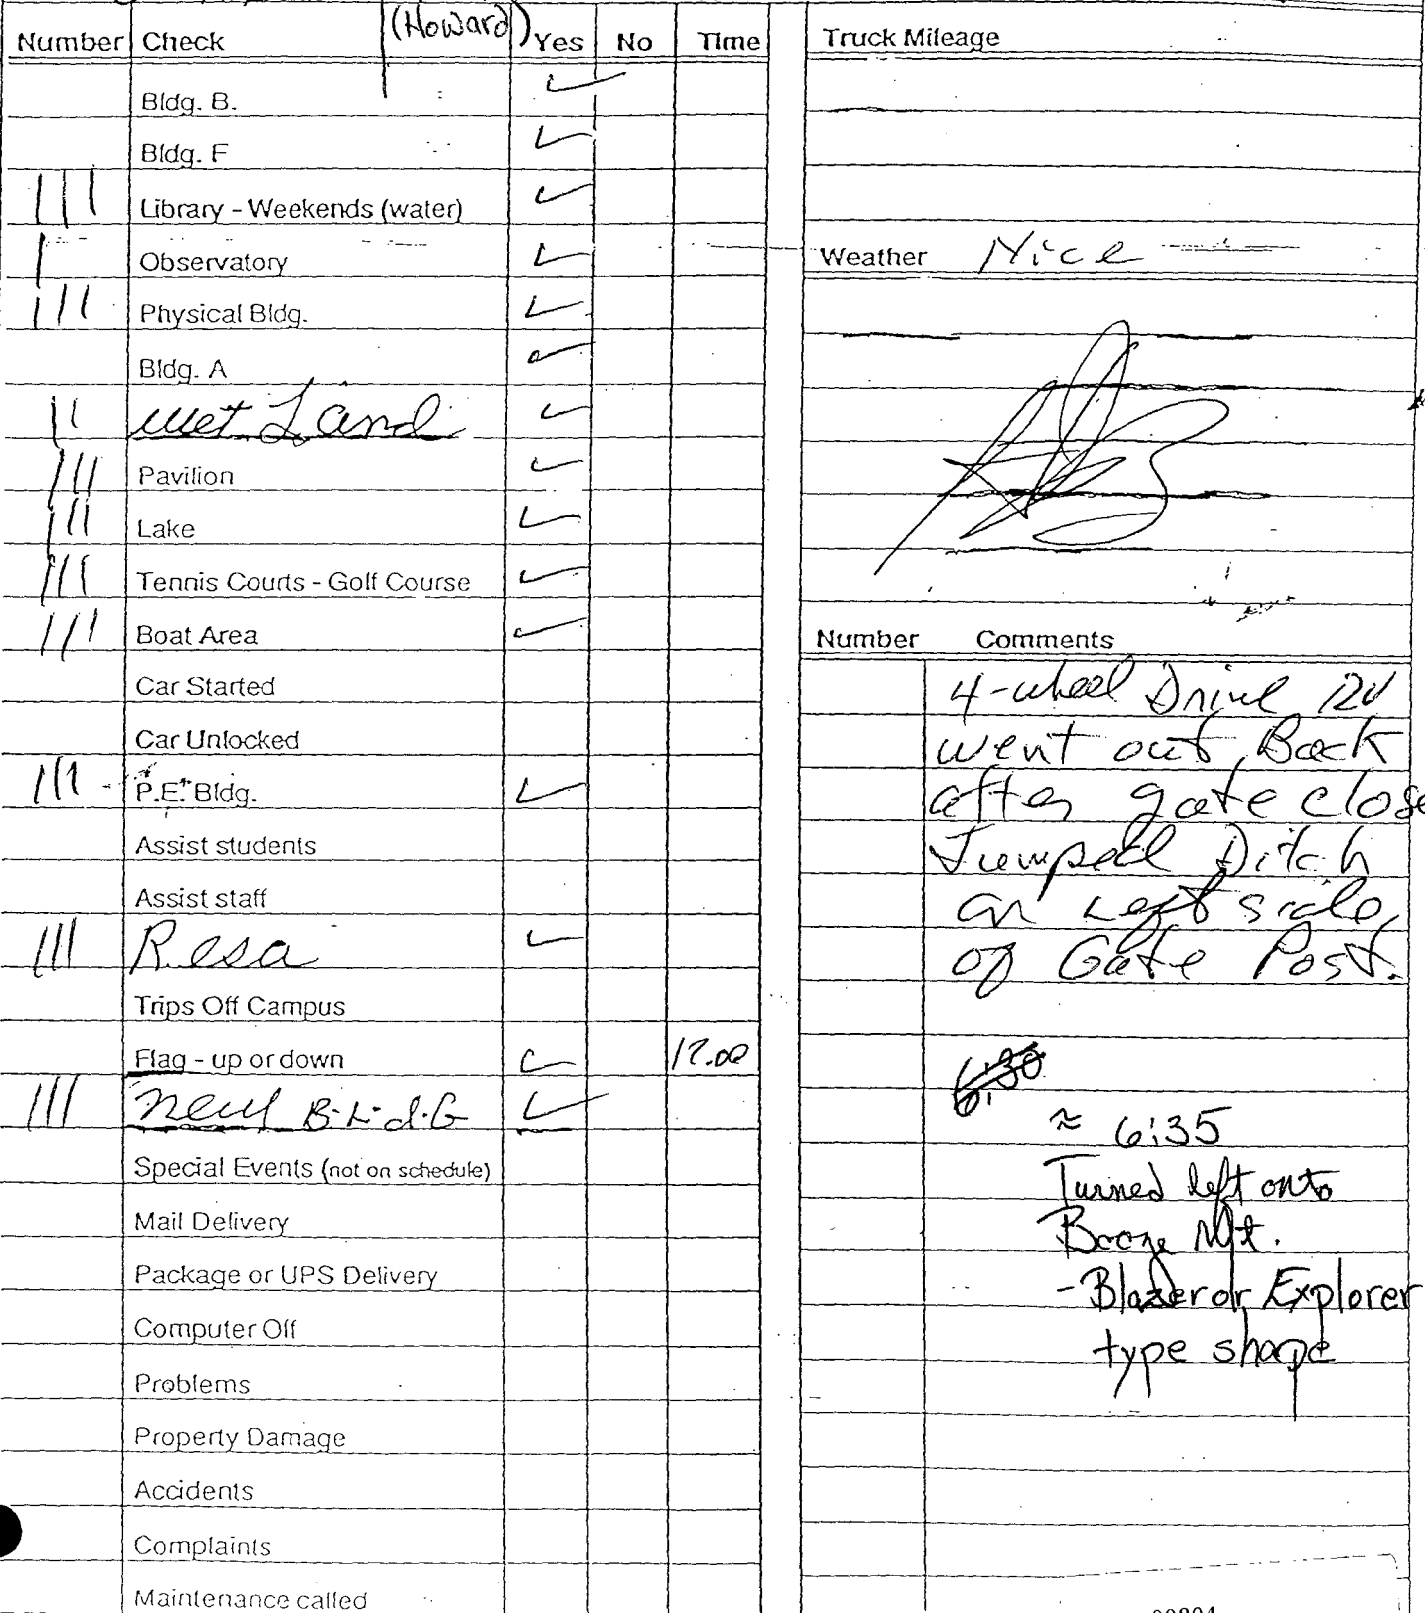 (Howard)
Number Check Yes No Time
Bldg. B. ✓
Bldg. F ✓
111 Library - Weekends (water) ✓
1 Observatory ✓
111 Physical Bldg. ✓
Bldg. A ✓
11 wet Land ✓
111 Pavilion ✓
111 Lake ✓
111 Tennis Courts - Golf Course ✓
111 Boat Area ✓
Car Started
Car Unlocked
111 P.E. Bldg. ✓
Assist students
Assist staff
111 Resa ✓
Trips Off Campus
Flag - up or down ✓ 17.00
111 new B.L.d.G ✓
Special Events (not on schedule)
Mail Delivery
Package or UPS Delivery
Computer Off
Problems
Property Damage
Accidents
Complaints
Maintenance called
Truck Mileage
Weather Nice
Number Comments
4-wheel Drive
went out Back
after gate close
Jumped Ditch
on Left side
of Gate Post.
6:30
≈ 6:35
Turned left onto
Booze Mt.
- Blazer or Explorer
type shape